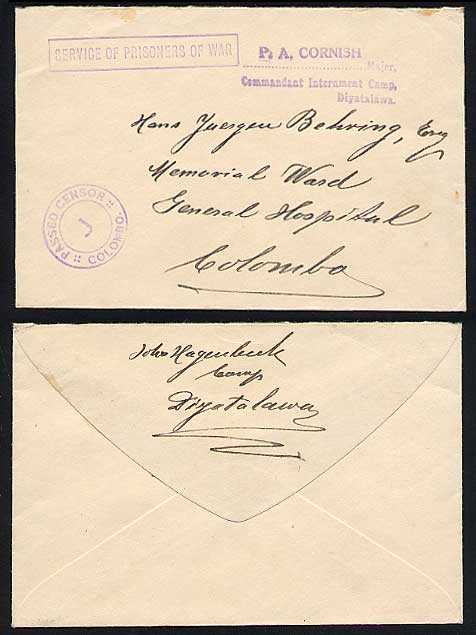 SERVICE OF PRISONERS OF WAR
P. A. CORNISH
Major,
Commandant Internment Camp,
Diyatalawa.
Hans Juergen Behring, Esq
Memorial Ward
General Hospital
Colombo
PASSED CENSOR
J
COLOMBO.
John Hagenbeck
Camp
Diyatalawa